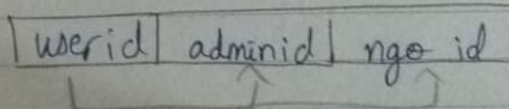 userid adminid ngo id